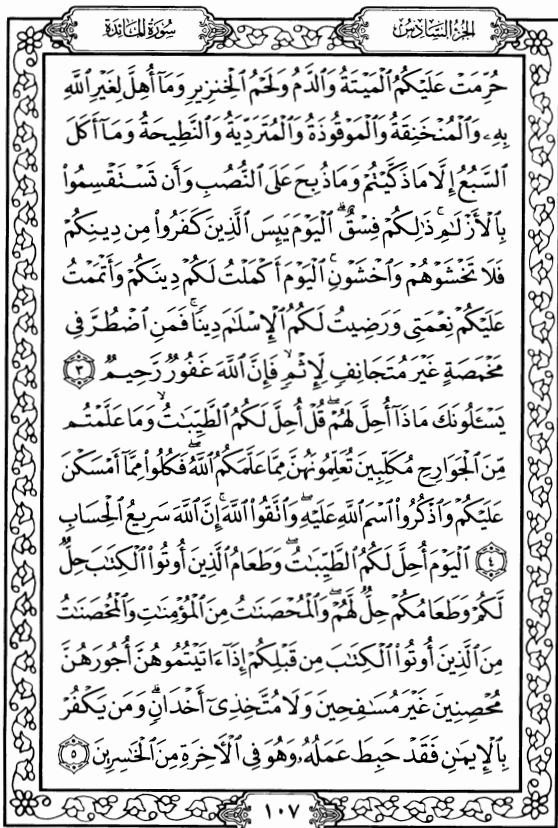 سُورَةُ المَائِدَةِ
الجُزْءُ السَّادِسُ
حُرِّمَتْ عَلَيْكُمُ ٱلْمَيْتَةُ وَٱلدَّمُ وَلَحْمُ ٱلْخِنزِيرِ وَمَآ أُهِلَّ لِغَيْرِ ٱللَّهِ
بِهِۦ وَٱلْمُنْخَنِقَةُ وَٱلْمَوْقُوذَةُ وَٱلْمُتَرَدِّيَةُ وَٱلنَّطِيحَةُ وَمَآ أَكَلَ
ٱلسَّبُعُ إِلَّا مَا ذَكَّيْتُمْ وَمَا ذُبِحَ عَلَى ٱلنُّصُبِ وَأَن تَسْتَقْسِمُوا۟
بِٱلْأَزْلَٰمِ ۚ ذَٰلِكُمْ فِسْقٌ ۗ ٱلْيَوْمَ يَئِسَ ٱلَّذِينَ كَفَرُوا۟ مِن دِينِكُمْ
فَلَا تَخْشَوْهُمْ وَٱخْشَوْنِ ۚ ٱلْيَوْمَ أَكْمَلْتُ لَكُمْ دِينَكُمْ وَأَتْمَمْتُ
عَلَيْكُمْ نِعْمَتِى وَرَضِيتُ لَكُمُ ٱلْإِسْلَٰمَ دِينًا ۚ فَمَنِ ٱضْطُرَّ فِى
مَخْمَصَةٍ غَيْرَ مُتَجَانِفٍ لِّإِثْمٍ ۙ فَإِنَّ ٱللَّهَ غَفُورٌ رَّحِيمٌ ٣
يَسْـَٔلُونَكَ مَاذَآ أُحِلَّ لَهُمْ ۖ قُلْ أُحِلَّ لَكُمُ ٱلطَّيِّبَٰتُ ۙ وَمَا عَلَّمْتُم
مِّنَ ٱلْجَوَارِحِ مُكَلِّبِينَ تُعَلِّمُونَهُنَّ مِمَّا عَلَّمَكُمُ ٱللَّهُ ۖ فَكُلُوا۟ مِمَّآ أَمْسَكْنَ
عَلَيْكُمْ وَٱذْكُرُوا۟ ٱسْمَ ٱللَّهِ عَلَيْهِ ۖ وَٱتَّقُوا۟ ٱللَّهَ ۚ إِنَّ ٱللَّهَ سَرِيعُ ٱلْحِسَابِ
٤ ٱلْيَوْمَ أُحِلَّ لَكُمُ ٱلطَّيِّبَٰتُ ۖ وَطَعَامُ ٱلَّذِينَ أُوتُوا۟ ٱلْكِتَٰبَ حِلٌّ
لَّكُمْ وَطَعَامُكُمْ حِلٌّ لَّهُمْ ۖ وَٱلْمُحْصَنَٰتُ مِنَ ٱلْمُؤْمِنَٰتِ وَٱلْمُحْصَنَٰتُ
مِنَ ٱلَّذِينَ أُوتُوا۟ ٱلْكِتَٰبَ مِن قَبْلِكُمْ إِذَآ ءَاتَيْتُمُوهُنَّ أُجُورَهُنَّ
مُحْصِنِينَ غَيْرَ مُسَٰفِحِينَ وَلَا مُتَّخِذِىٓ أَخْدَانٍ ۗ وَمَن يَكْفُرْ
بِٱلْإِيمَٰنِ فَقَدْ حَبِطَ عَمَلُهُۥ وَهُوَ فِى ٱلْأَخِرَةِ مِنَ ٱلْخَٰسِرِينَ ٥
١٠٧